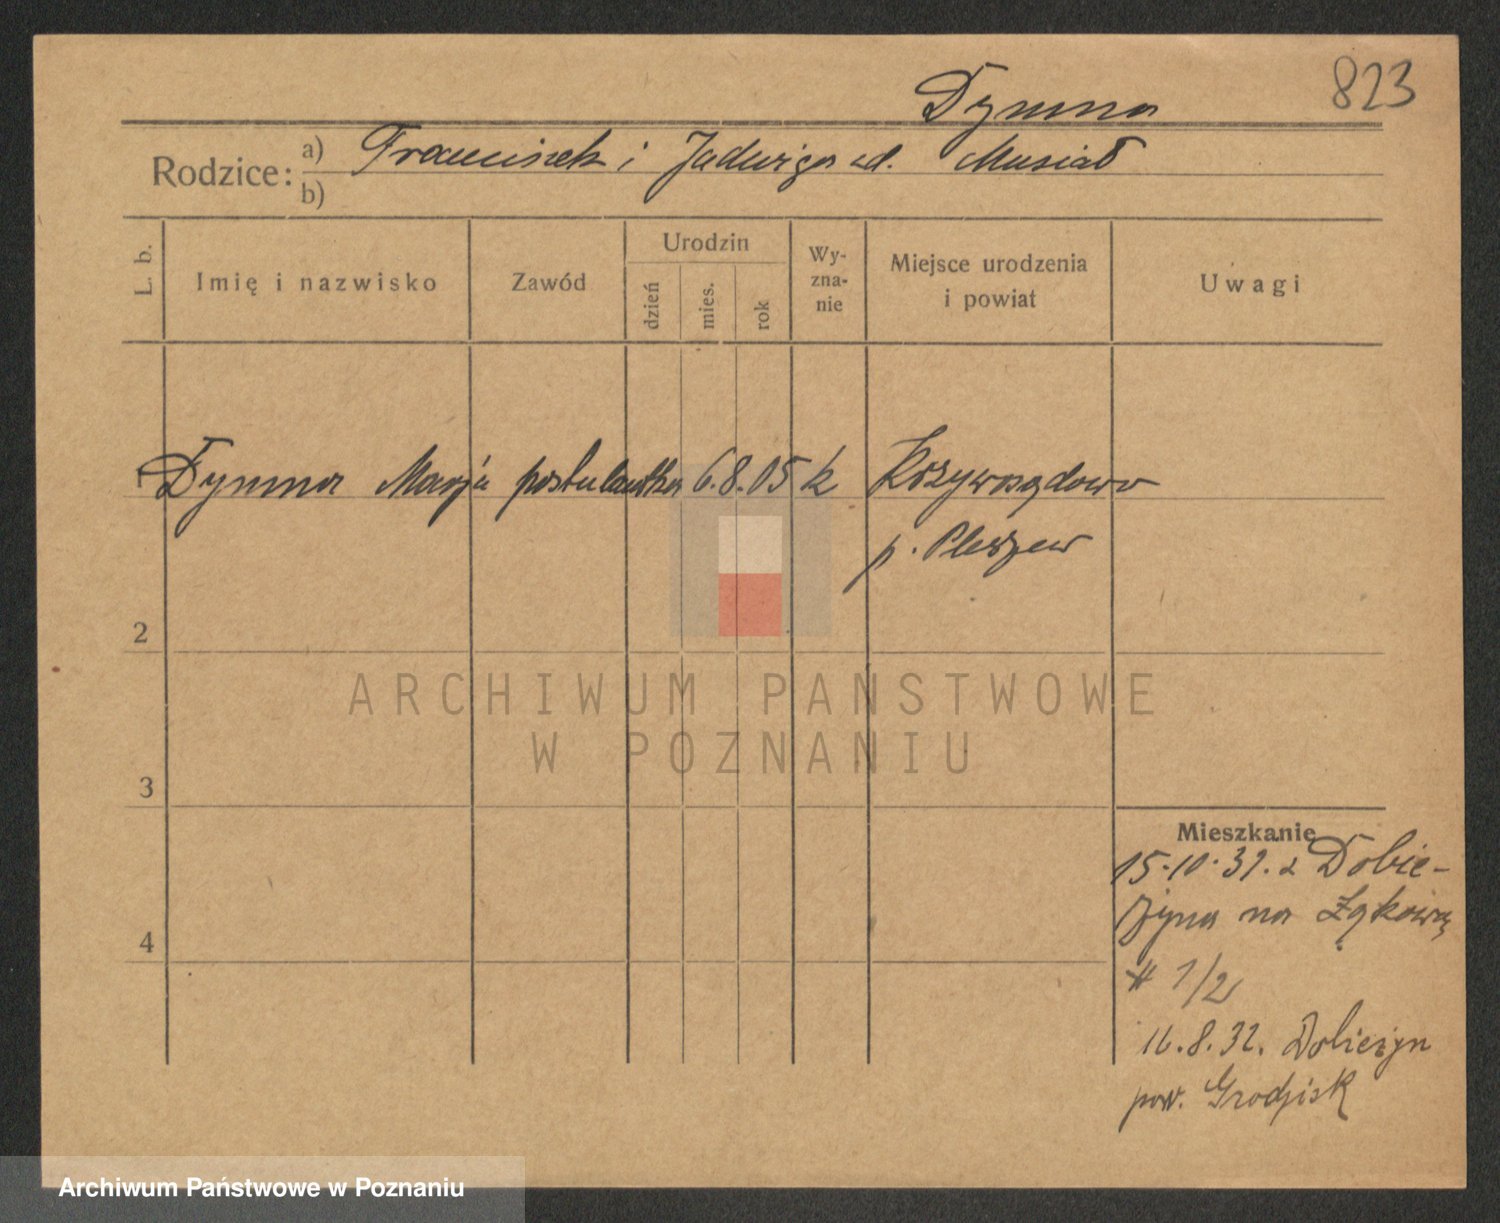 823
Dymna
Rodzice: a) Franciszek i Jadwiga z d. Musiał
b)
L. b. Imię i nazwisko Zawód Urodzin dzień mies. rok Wy-zna-nie Miejsce urodzenia i powiat Uwagi
1 Dymna Marja postulantka 6. 8. 05 k Krzywosądowo
p. Pleszew
2
ARCHIWUM PAŃSTWOWE
W POZNANIU
3
4
Mieszkanie
15.10.31. z Dobie-
żyna na Łąkową
# 1/2
16.8.32. Dobieżyn
pow. Grodzisk
Archiwum Państwowe w Poznaniu